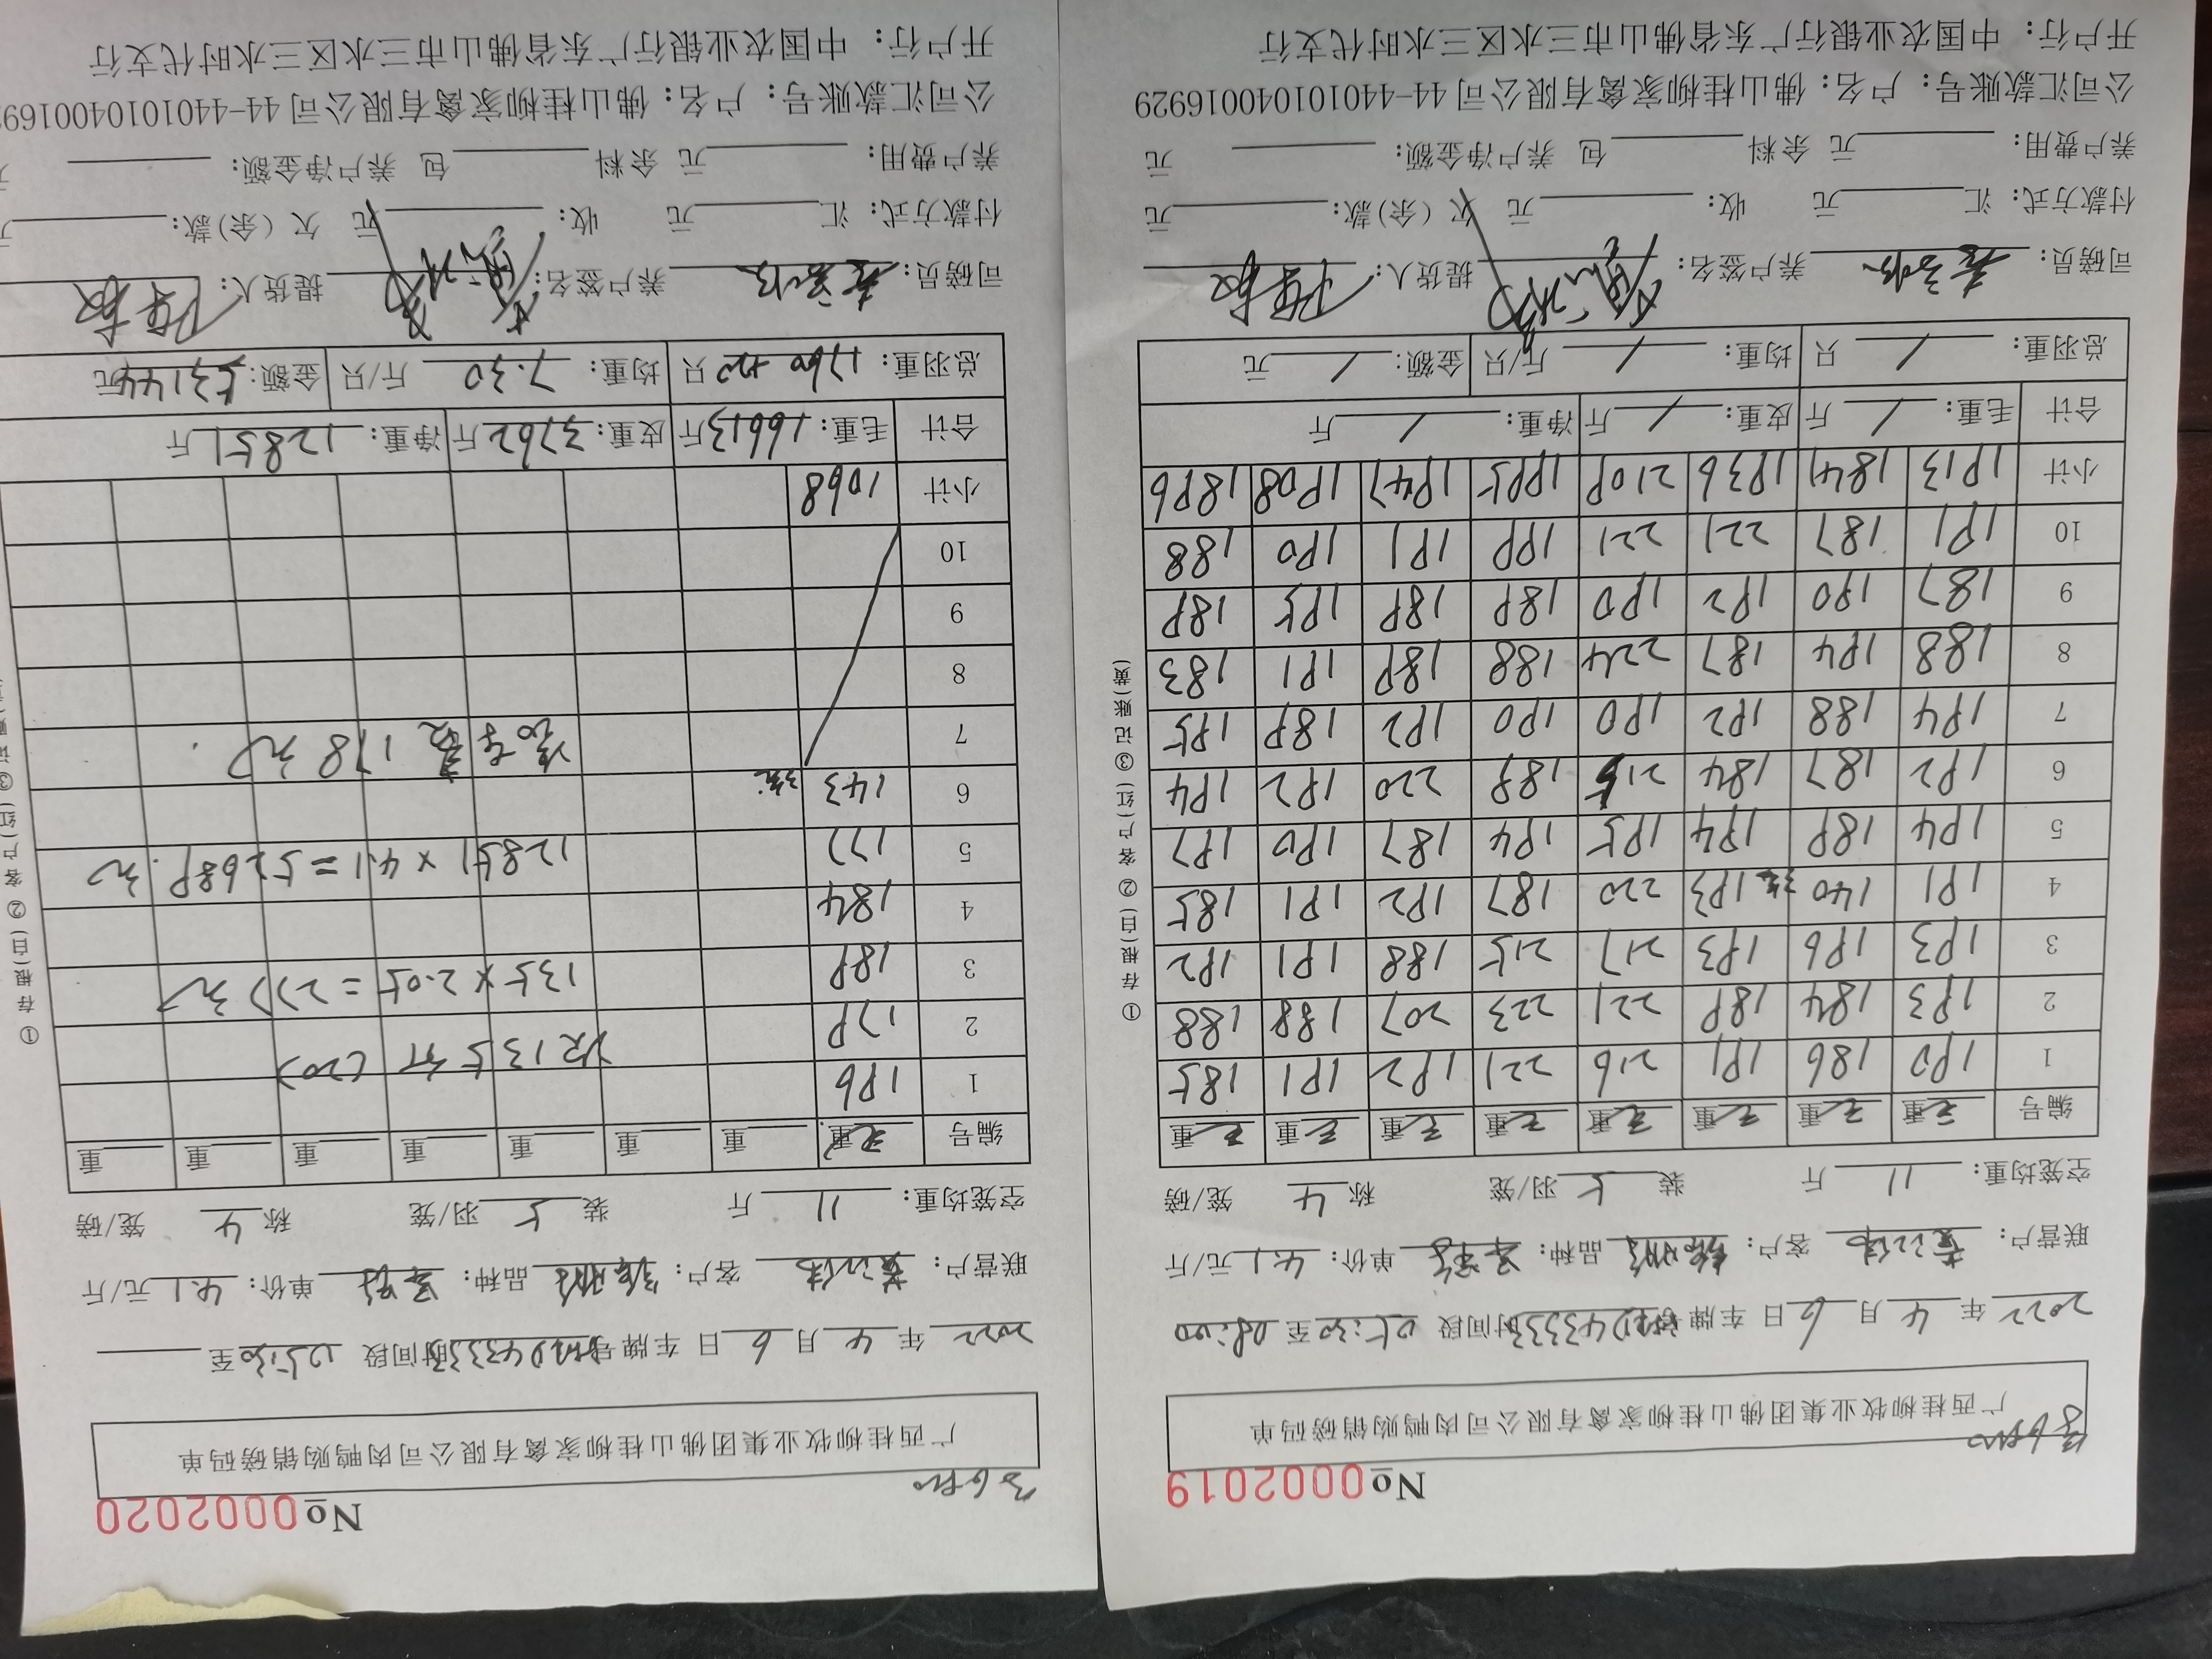 No0002019
广西桂柳牧业集团佛山桂柳家禽有限公司肉鸭购销磅码单
2022 年 4 月 6 日 车牌号 43333 时间段 05:30 至 08:00
联营户: 客户: 品种: 单价: 4.1 元/斤
空笼均重: 11 斤 装 5 羽/笼 称 4 笼/磅
编号 毛重 毛重 毛重 毛重 毛重 毛重 毛重 毛重
1 190 186 191 216 221 192 191 185
2 193 184 189 221 223 207 188 188
3 193 196 193 217 215 188 191 192
4 191 140 3笼 193 220 187 192 191 185
5 194 189 194 195 194 187 190 197
6 192 187 184 215 189 220 192 194
7 194 188 192 190 190 192 189 195
8 188 194 187 224 188 189 191 183
9 187 190 192 190 189 189 195 189
10 191 187 221 221 199 191 190 188
小计 1913 1841 1936 2109 1995 1947 1908 1896
合计 毛重: / 斤 皮重: / 斤 净重: / 斤
总羽重: / 只 均重: / 斤/只 金额: / 元
司磅员: 养户签名: 提货人:
付款方式: 汇 元 收: 元 欠(余)款: 元
养户费用: 元 余料 包 养户净金额: 元
公司汇款账号: 户名: 佛山桂柳家禽有限公司 44-440101040016929
开户行: 中国农业银行广东省佛山市三水区三水时代支行
① 存根(白) ② 客户(红) ③ 记账(黄)
No0002020
广西桂柳牧业集团佛山桂柳家禽有限公司肉鸭购销磅码单
2022 年 4 月 6 日 车牌号 43333 时间段 05:30 至
联营户: 客户: 品种: 单价: 4.1 元/斤
空笼均重: 11 斤 装 5 羽/笼 称 4 笼/磅
编号 毛重 重 重 重 重 重 重 重
1 196
2 179 135斤 (20)
3 189 135×2.05=277元
4 184
5 177 12851×4.1=52689.元
6 143 3笼
7 装车费178元.
8
9
10
小计 1068
合计 毛重: 16613 斤 皮重: 3762 斤 净重: 12851 斤
总羽重: 1760 只 均重: 7.30 斤/只 金额: 53144 元
司磅员: 养户签名: 提货人:
付款方式: 汇 元 收: 元 欠(余)款: 元
养户费用: 元 余料 包 养户净金额: 元
公司汇款账号: 户名: 佛山桂柳家禽有限公司 44-4401010400169
开户行: 中国农业银行广东省佛山市三水区三水时代支行
① 存根(白) ② 客户(红) ③ 记账